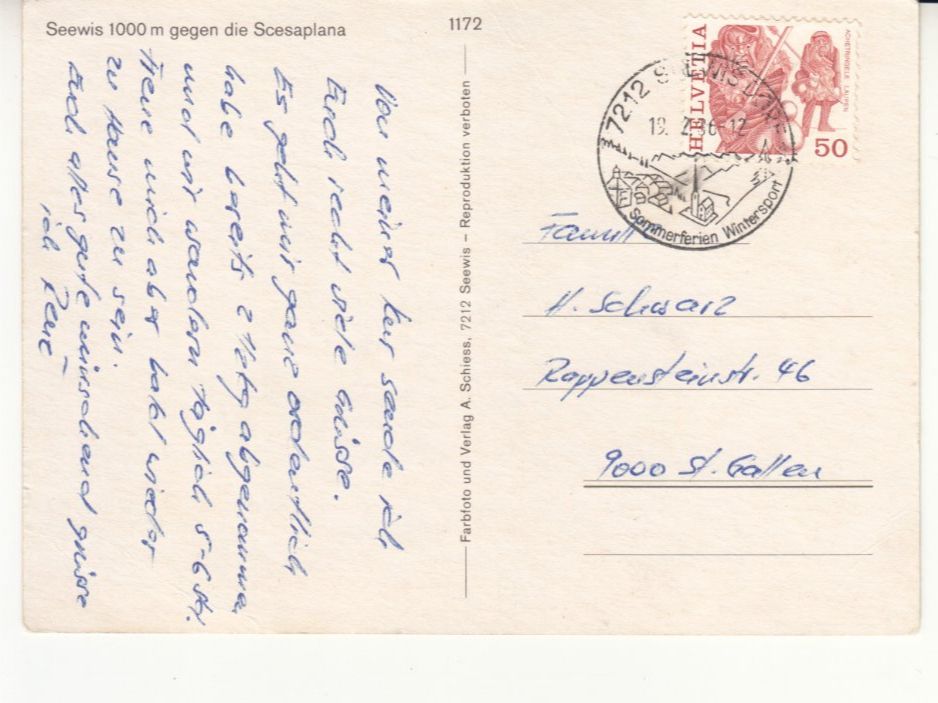 Seewis 1000 m gegen die Scesaplana
1172
Von meiner Kur sende ich
Euch recht viele Grüsse.
Es geht mir ganz ordentlich
habe bereits 2 kg abgenommen
und wir wandern täglich 5-6 Std.
Freue mich aber bald wieder
zu Hause zu sein
Euch alles gute wünschend grüsse
ich René
Farbfoto und Verlag A. Schiess, 7212 Seewis – Reproduktion verboten
HELVETIA
ACHETRINGELE LAUPEN
50
7212 SEEWIS DORF
19. 86-12
Sommerferien Wintersport
Familie
H. Schwarz
Rappensteinstr. 46
9000 St. Gallen